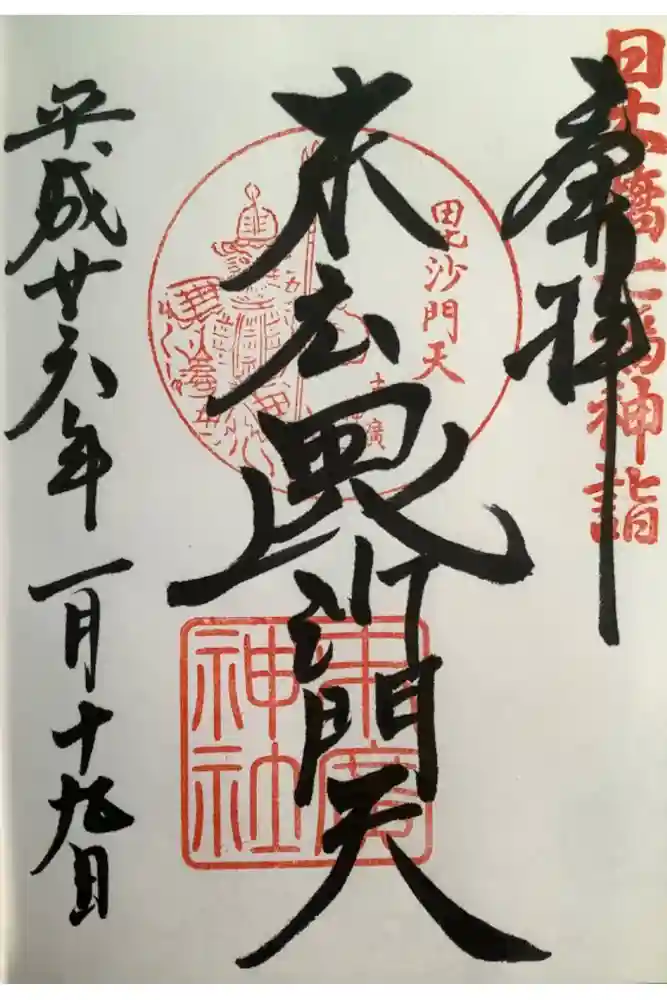 日本橋七福神詣
奉拝
毘沙門天
末広毘沙門天
末廣神社
平成廿六年一月十九日